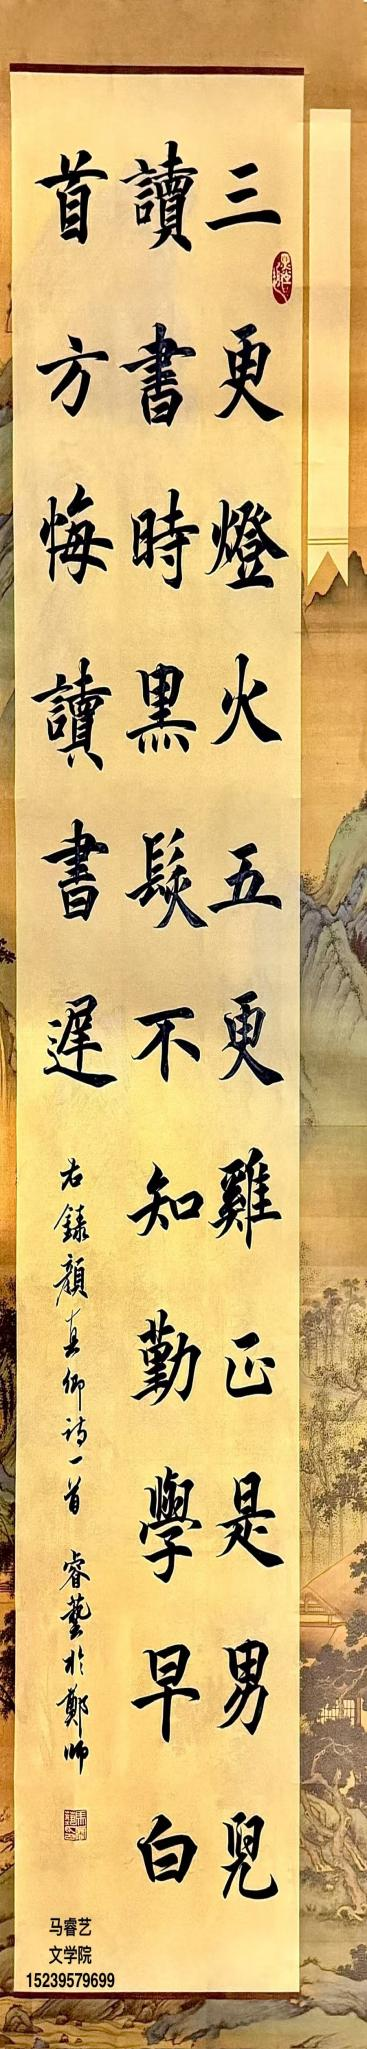 三更燈火五更雞正是男兒
讀書時黑髮不知勤學早白
首方悔讀書遲
右録顏真卿詩一首 睿藝於鄭師
马睿艺
文学院
15239579699